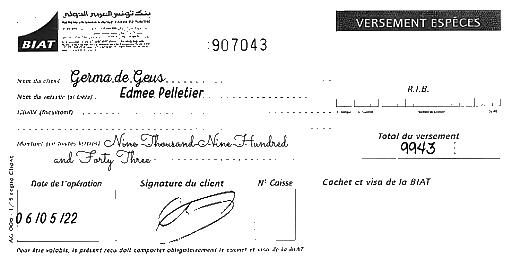 بنك تونس العربي الدولي
BIAT
VERSEMENT ESPÈCES
907043
Nom du client Germa de Geus
Nom du verseur (si tiers) Edmee Pelletier
R.I.B.
Libellé (facultatif)
Montant (en toutes lettres) Nine Thousand Nine Hundred
and Forty Three
Total du versement
9943
Date de l'opération
Signature du client
N° Caisse
Cachet et visa de la BIAT
06/05/22
Pour être valable, le présent reçu doit comporter obligatoirement le cachet et visa de la BIAT
copie Client